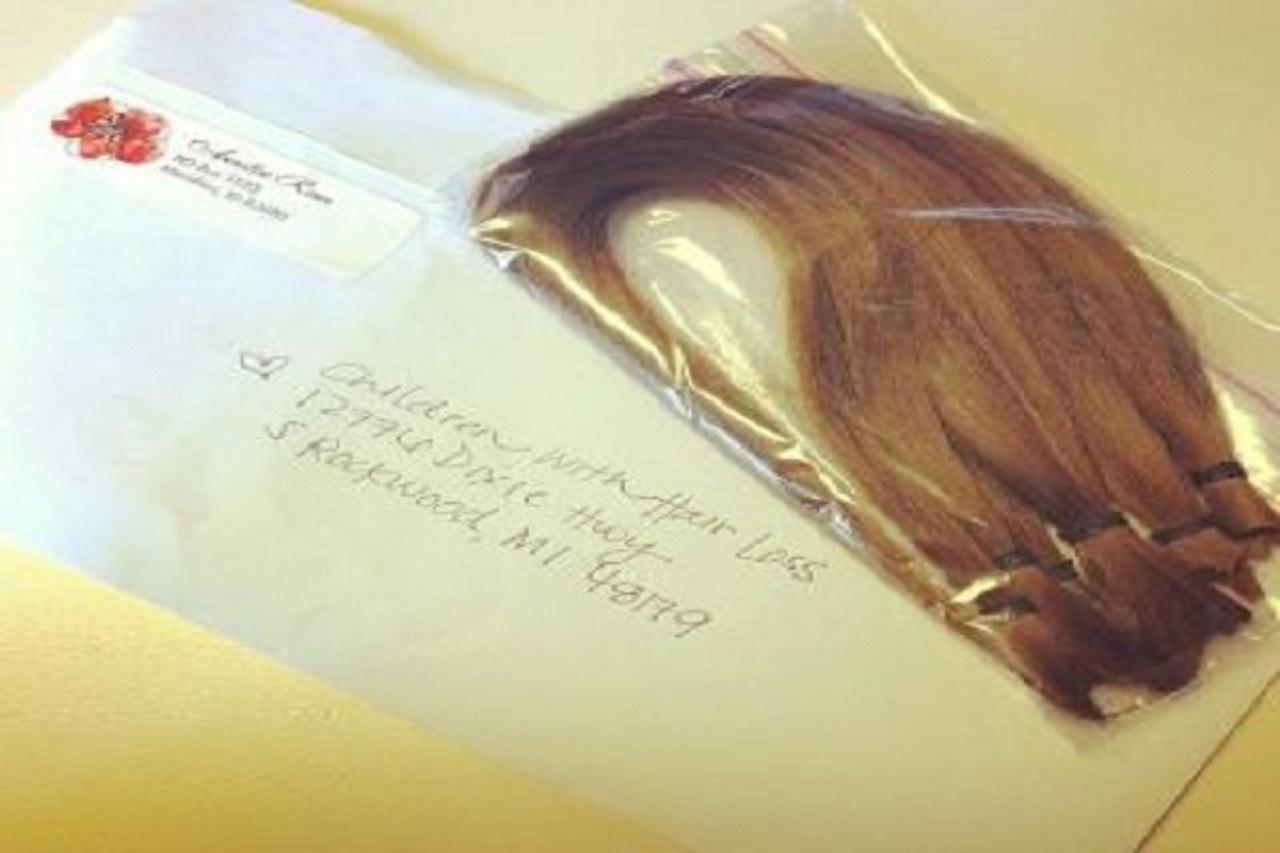 PO Box
Children With Hair Loss
12776 Dixie Hwy
S Rockwood, MI 48179